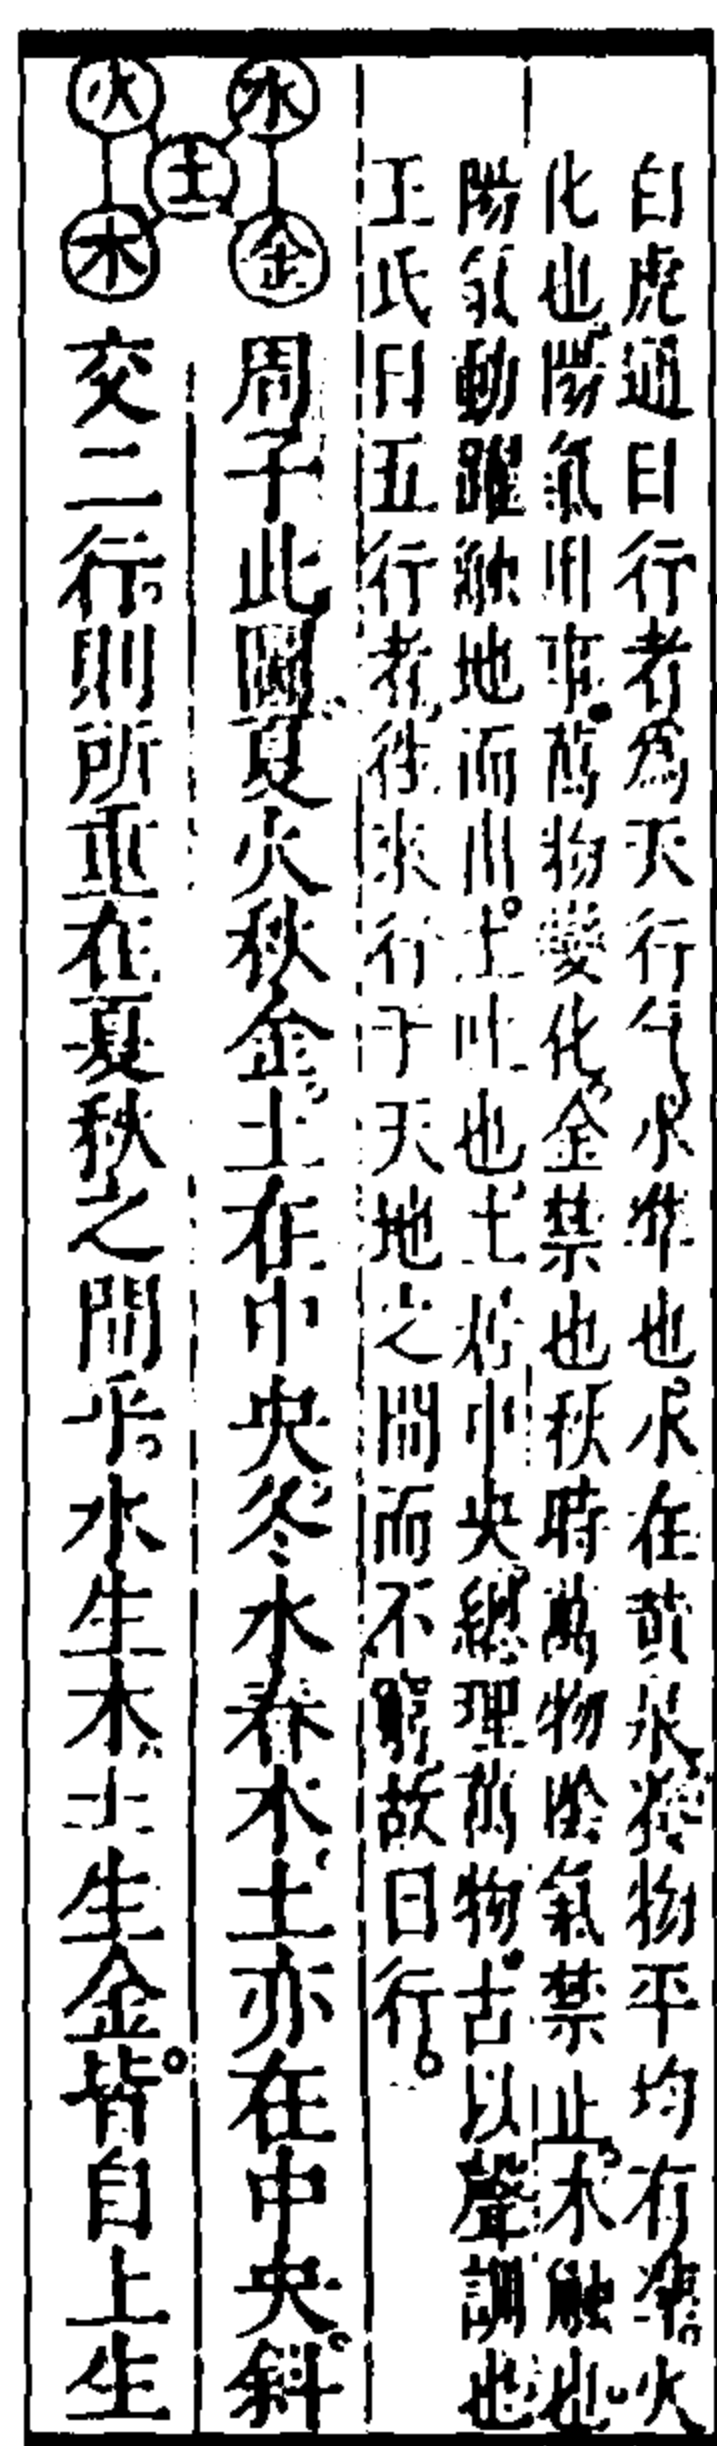 白虎通曰行者為天行气水準也水在黄泉養物平均有準火
化也陽氣用事萬物變化金禁也秋時萬物陰氣禁止木觸也
陽氣動躍觸地而出土吐也土居中央總理萬物古以聲訓也
王氏曰五行者往來行于天地之間而不窮故曰行
水 金 土 火 木
周子此圖夏火秋金土在中央冬水春木土亦在中央斜
交二行則所重在夏秋之間乎水生木土生金皆自上生